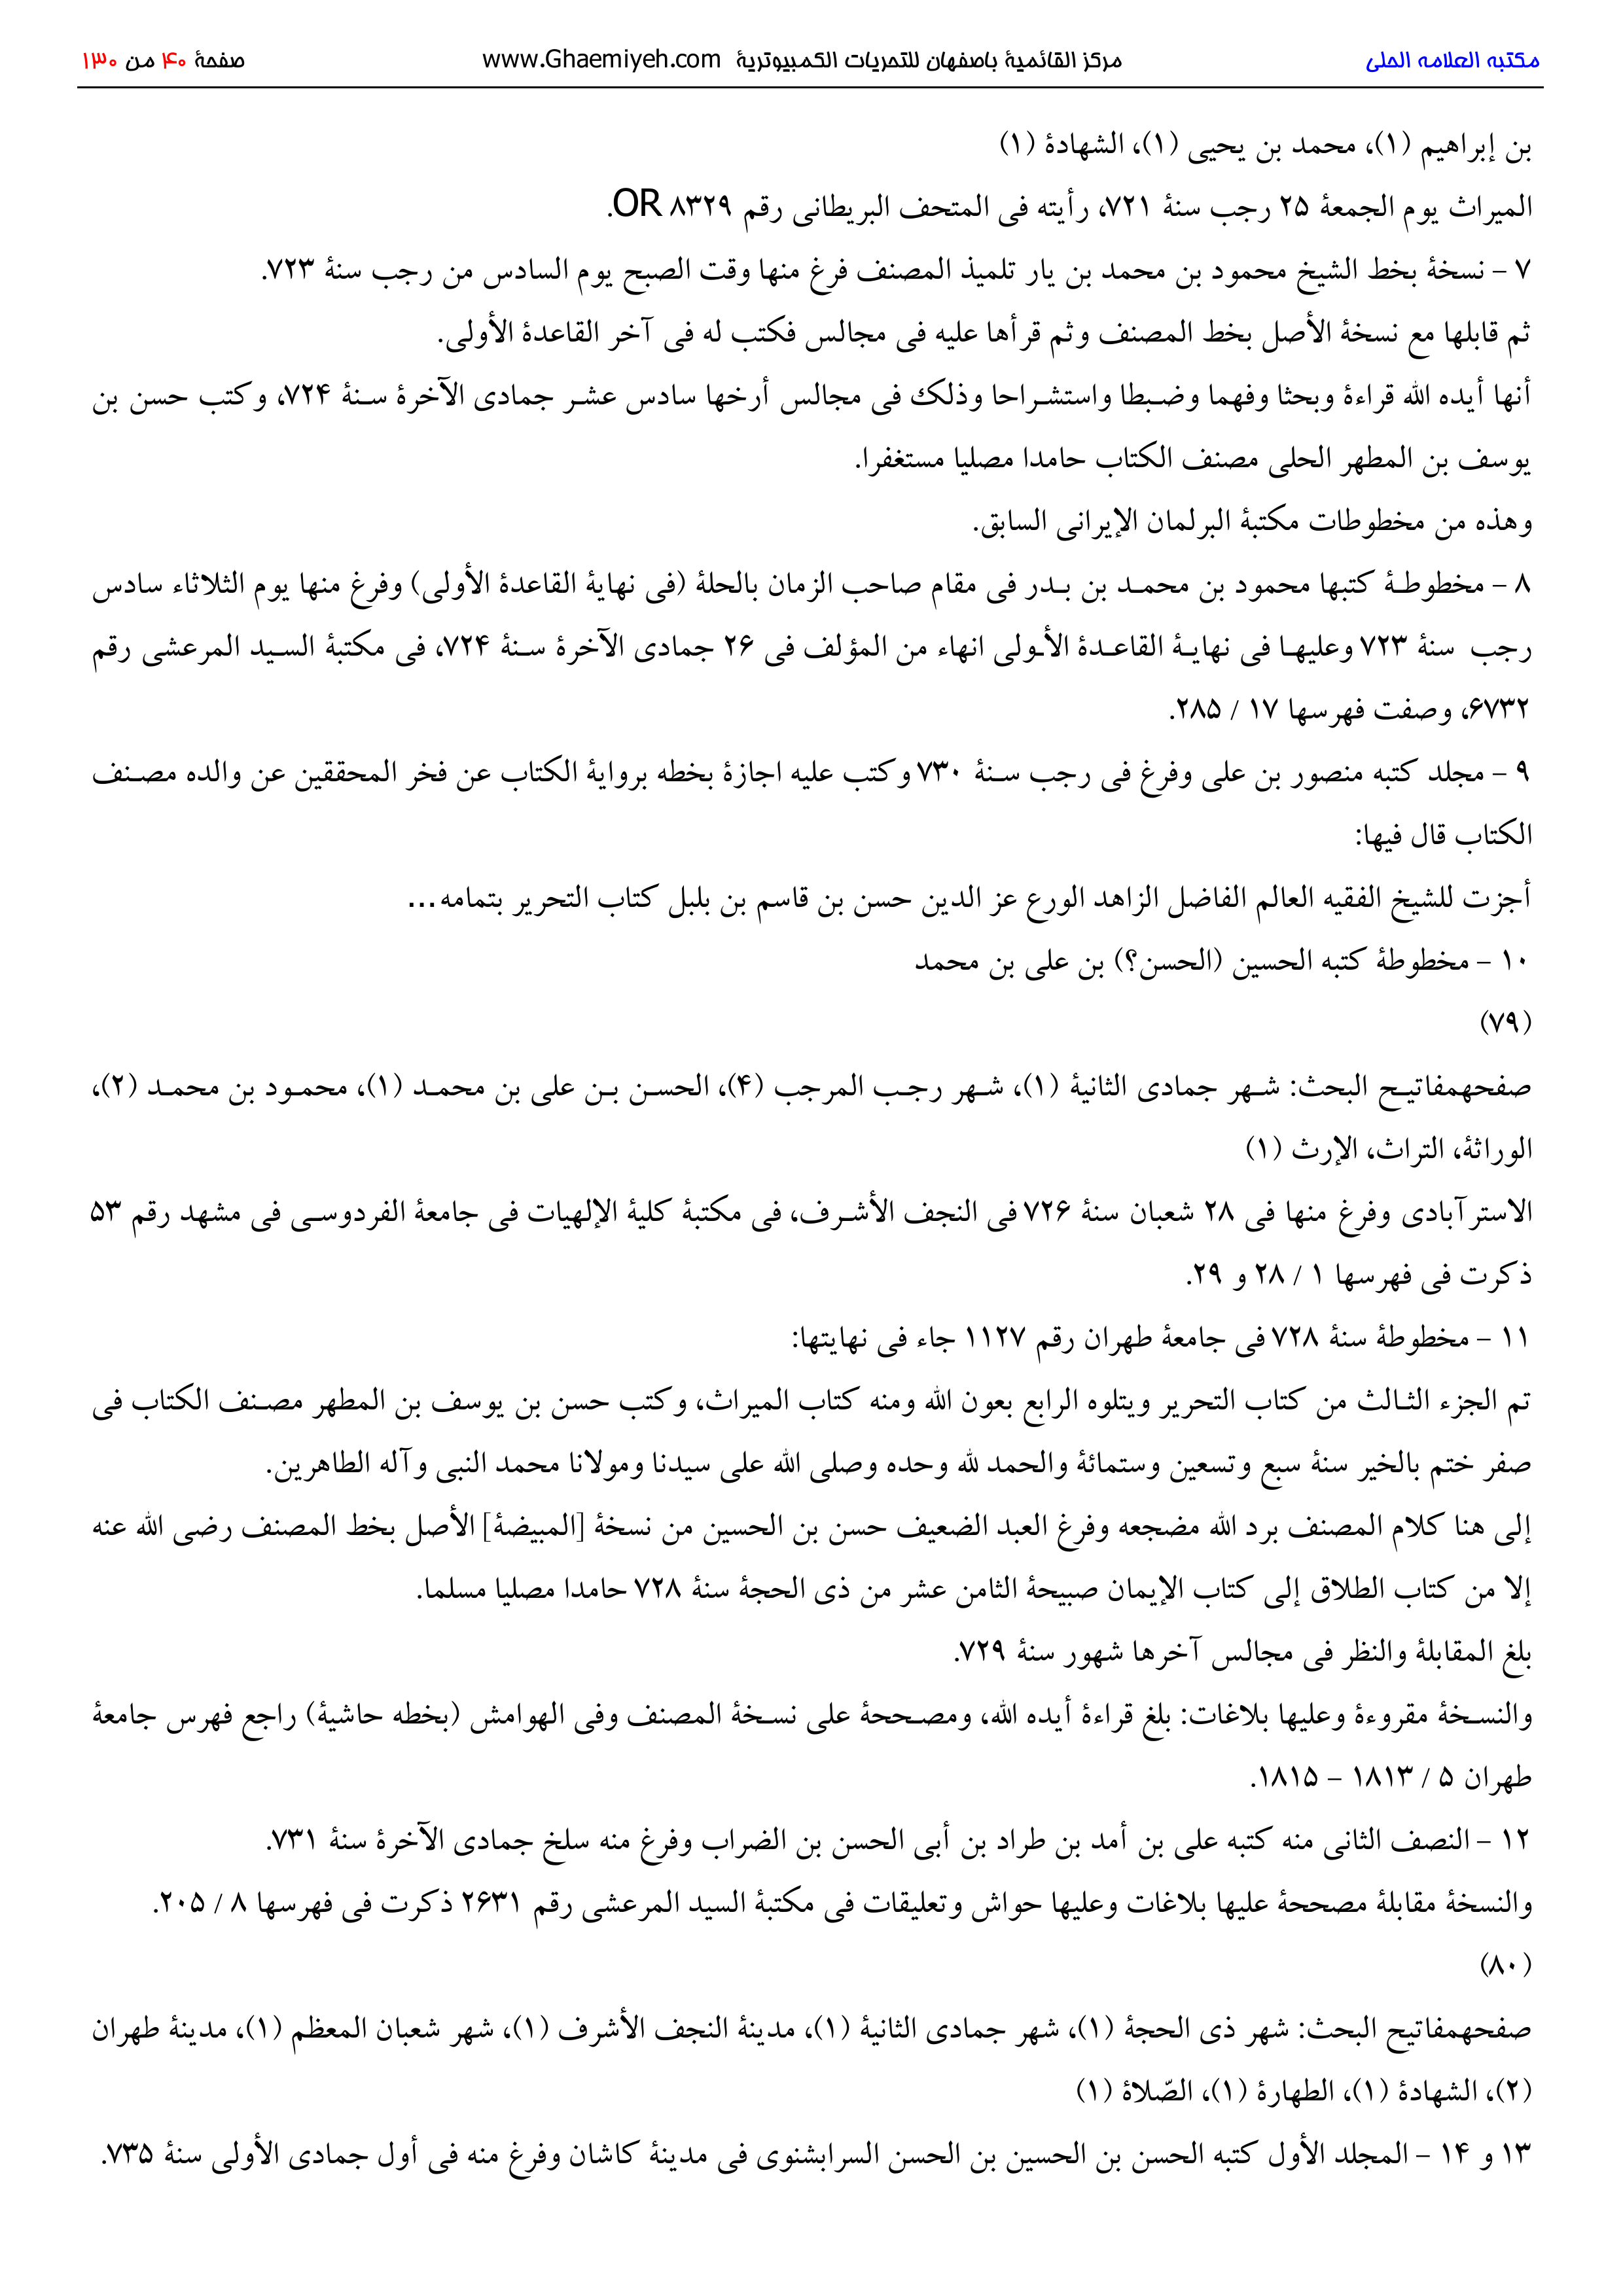 مكتبه العلامه الحلی    مركز القائمیۀ باصفهان للتحریات الكمبیوتریۀ www.Ghaemiyeh.com    صفحۀ ۴۰ من ۱۳۰
بن إبراهیم (۱)، محمد بن یحیی (۱)، الشهادۀ (۱)
المیراث یوم الجمعۀ ۲۵ رجب سنۀ ۷۲۱، رأیته فی المتحف البریطانی رقم OR ۸۳۲۹.
۷ – نسخۀ بخط الشیخ محمود بن محمد بن یار تلمیذ المصنف فرغ منها وقت الصبح یوم السادس من رجب سنۀ ۷۲۳.
ثم قابلها مع نسخۀ الأصل بخط المصنف وثم قرأها علیه فی مجالس فكتب له فی آخر القاعدۀ الأولی.
أنها أیده الله قراءۀ وبحثا وفهما وضبطا واستشراحا وذلك فی مجالس أرخها سادس عشر جمادی الآخرۀ سنۀ ۷۲۴، وكتب حسن بن
یوسف بن المطهر الحلی مصنف الكتاب حامدا مصلیا مستغفرا.
وهذه من مخطوطات مكتبۀ البرلمان الإیرانی السابق.
۸ – مخطوطۀ كتبها محمود بن محمد بن بدر فی مقام صاحب الزمان بالحلۀ (فی نهایۀ القاعدۀ الأولی) وفرغ منها یوم الثلاثاء سادس
رجب سنۀ ۷۲۳ وعلیها فی نهایۀ القاعدۀ الأولی انهاء من المؤلف فی ۲۶ جمادی الآخرۀ سنۀ ۷۲۴، فی مكتبۀ السید المرعشی رقم
۶۷۳۲، وصفت فهرسها ۱۷ / ۲۸۵.
۹ – مجلد كتبه منصور بن علی وفرغ فی رجب سنۀ ۷۳۰ وكتب علیه اجازۀ بخطه بروایۀ الكتاب عن فخر المحققین عن والده مصنف
الكتاب قال فیها:
أجزت للشیخ الفقیه العالم الفاضل الزاهد الورع عز الدین حسن بن قاسم بن بلبل كتاب التحریر بتمامه...
۱۰ – مخطوطۀ كتبه الحسین (الحسن؟) بن علی بن محمد
(۷۹)
صفحهمفاتیح البحث: شهر جمادی الثانیۀ (۱)، شهر رجب المرجب (۴)، الحسن بن علی بن محمد (۱)، محمود بن محمد (۲)،
الوراثۀ، التراث، الإرث (۱)
الاسترآبادی وفرغ منها فی ۲۸ شعبان سنۀ ۷۲۶ فی النجف الأشرف، فی مكتبۀ كلیۀ الإلهیات فی جامعۀ الفردوسی فی مشهد رقم ۵۳
ذكرت فی فهرسها ۱ / ۲۸ و ۲۹.
۱۱ – مخطوطۀ سنۀ ۷۲۸ فی جامعۀ طهران رقم ۱۱۲۷ جاء فی نهایتها:
تم الجزء الثالث من كتاب التحریر ویتلوه الرابع بعون الله ومنه كتاب المیراث، وكتب حسن بن یوسف بن المطهر مصنف الكتاب فی
صفر ختم بالخیر سنۀ سبع وتسعین وستمائۀ والحمد لله وحده وصلی الله علی سیدنا ومولانا محمد النبی وآله الطاهرین.
إلی هنا كلام المصنف برد الله مضجعه وفرغ العبد الضعیف حسن بن الحسین من نسخۀ [المبیضۀ] الأصل بخط المصنف رضی الله عنه
إلا من كتاب الطلاق إلی كتاب الإیمان صبیحۀ الثامن عشر من ذی الحجۀ سنۀ ۷۲۸ حامدا مصلیا مسلما.
بلغ المقابلۀ والنظر فی مجالس آخرها شهور سنۀ ۷۲۹.
والنسخۀ مقروءۀ وعلیها بلاغات: بلغ قراءۀ أیده الله، ومصححۀ علی نسخۀ المصنف وفی الهوامش (بخطه حاشیۀ) راجع فهرس جامعۀ
طهران ۵ / ۱۸۱۳ – ۱۸۱۵.
۱۲ – النصف الثانی منه كتبه علی بن أمد بن طراد بن أبی الحسن بن الضراب وفرغ منه سلخ جمادی الآخرۀ سنۀ ۷۳۱.
والنسخۀ مقابلۀ مصححۀ علیها بلاغات وعلیها حواش وتعلیقات فی مكتبۀ السید المرعشی رقم ۲۶۳۱ ذكرت فی فهرسها ۸ / ۲۰۵.
(۸۰)
صفحهمفاتیح البحث: شهر ذی الحجۀ (۱)، شهر جمادی الثانیۀ (۱)، مدینۀ النجف الأشرف (۱)، شهر شعبان المعظم (۱)، مدینۀ طهران
(۲)، الشهادۀ (۱)، الطهارۀ (۱)، الصّلاۀ (۱)
۱۳ و ۱۴ – المجلد الأول كتبه الحسن بن الحسین بن الحسن السرابشنوی فی مدینۀ كاشان وفرغ منه فی أول جمادی الأولی سنۀ ۷۳۵.